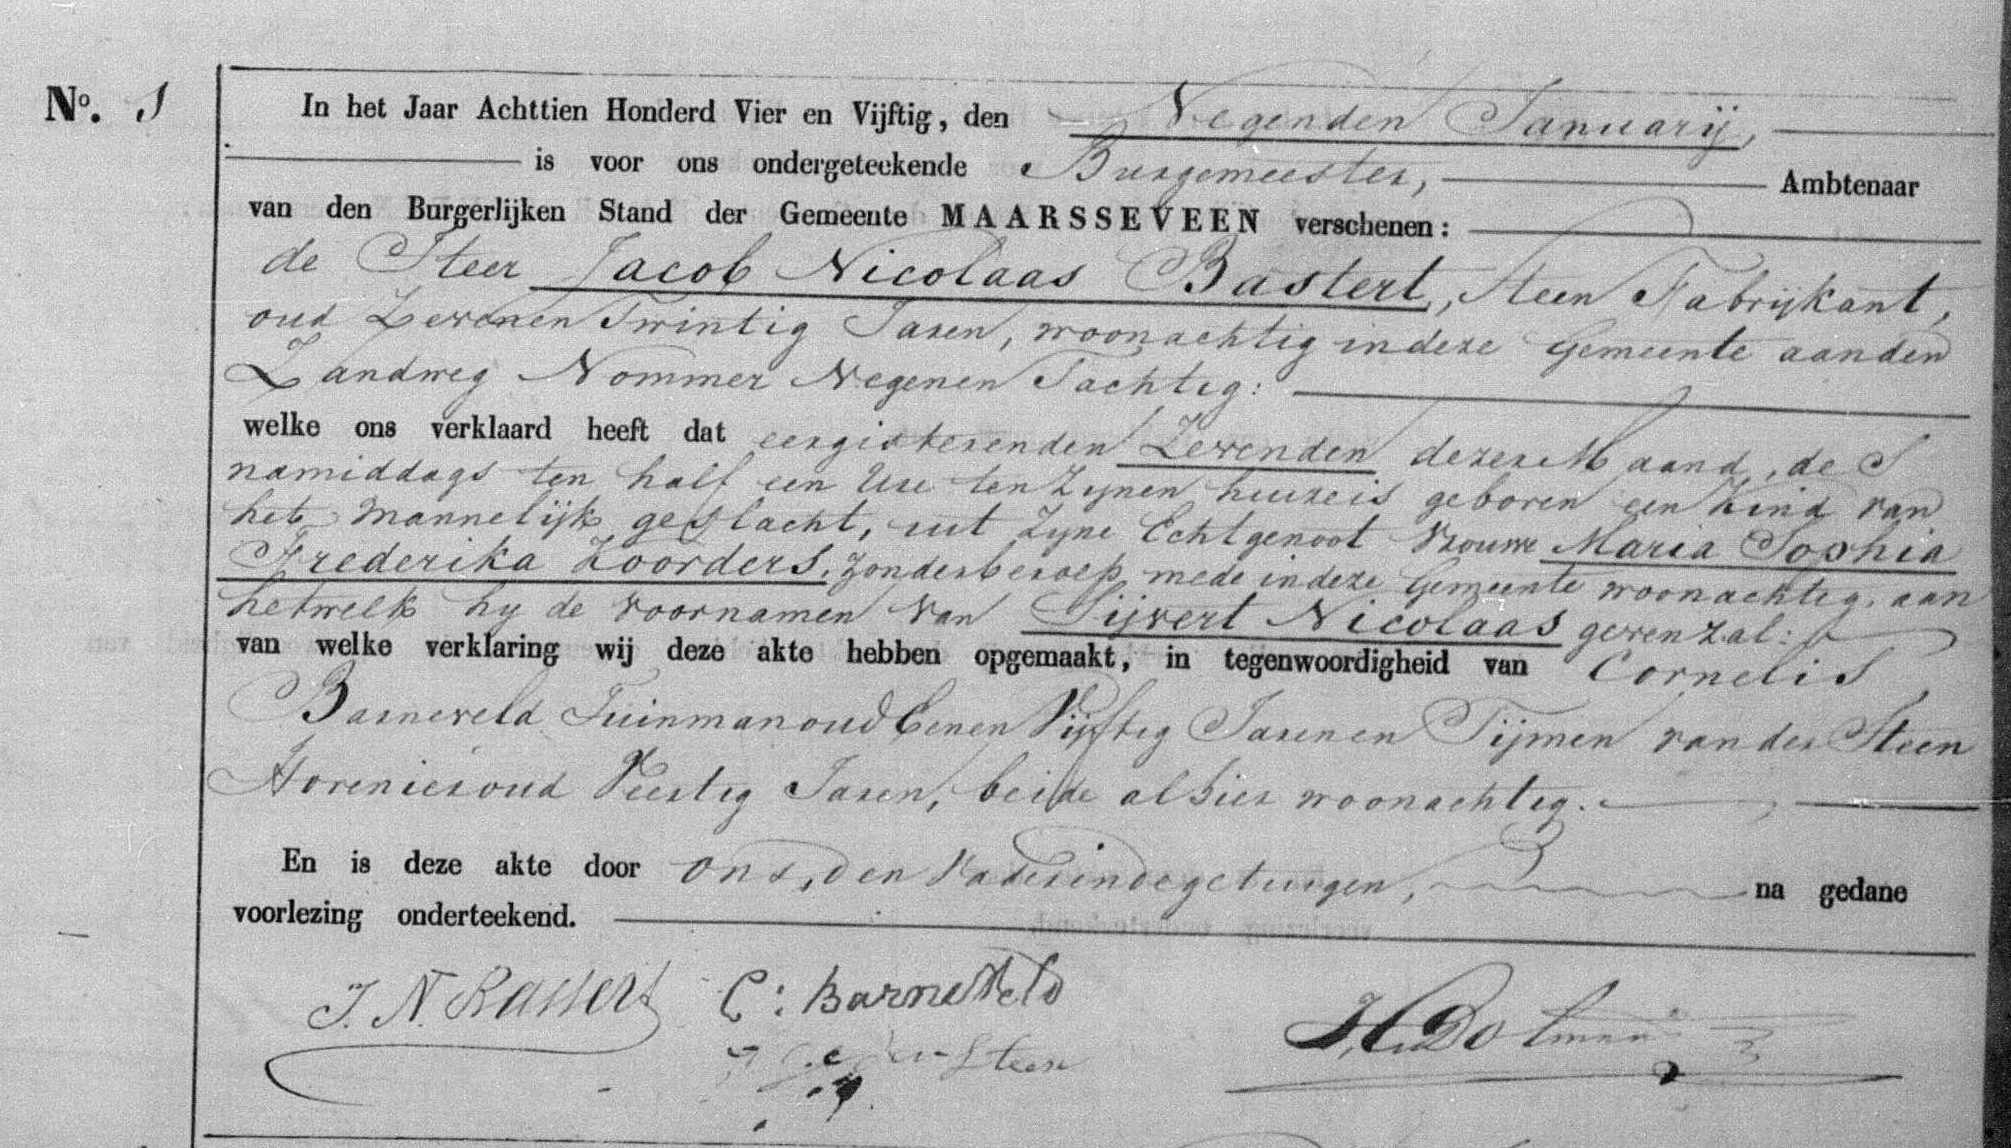 No. 1
In het Jaar Achttien Honderd Vier en Vijftig, den Negenden Januarij,
is voor ons ondergeteekende Burgemeester, Ambtenaar
van den Burgerlijken Stand der Gemeente MAARSSEVEEN verschenen:
de Heer Jacob Nicolaas Bastert, Steen Fabrijkant,
oud Zevenen Twintig Jaren, woonachtig in deze Gemeente aanden
Zandweg Nommer Negenen Tachtig:
welke ons verklaard heeft dat eergisterenden Zevenden dezer Maand, des
namiddags ten half een Ure ten Zijnen huize is geboren een Kind van
het Mannelijk geslacht, uit Zijne Echtgenoot Vrouwe Maria Sophia
Frederika Zoorders, Zonder beroep mede in deze Gemeente woonachtig, aan
hetwelk hy de voornamen van Sijvert Nicolaas geven zal:
van welke verklaring wij deze akte hebben opgemaakt, in tegenwoordigheid van Cornelis
Barneveld Tuinman oud Eenen Vijftig Jaren en Tijmen van der Steen
Hovenier oud Veertig Jaren, beide alhier woonachtig.
En is deze akte door ons, den Vader en de getuigen, na gedane
voorlezing onderteekend.
J. N. Bastert C: Barneveld H. Dolman
van der Steen